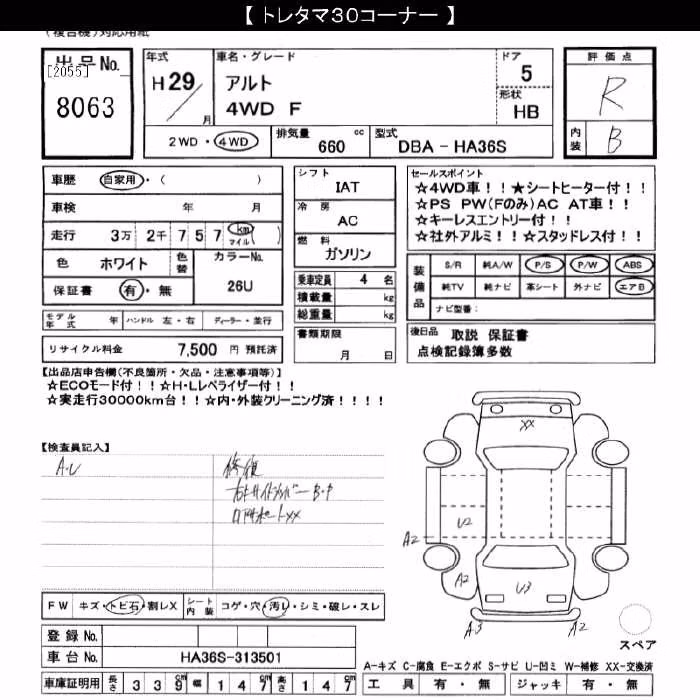 【 トレタマ30コーナー 】
(複合機)対応用紙
出品No.
[2055]
8063
年式
H29
月
車名・グレード
アルト
4WD F
ドア
5
形状
HB
評価点
R
内装
B
2WD・4WD
排気量
660
cc
型式
DBA - HA36S
車歴
自家用・( )
車検 年 月
走行 3万 2千 7 5 7 km マイル ( )
色 ホワイト
色替
カラーNo.
26U
保証書 有・無
シフト
IAT
冷房
AC
燃料
ガソリン
乗車定員 4 名
積載量 kg
総重量 kg
書類期限
月 日
セールスポイント
☆4WD車!!★シートヒーター付!!
☆PS PW(Fのみ)AC AT車!!
☆キーレスエントリー付!!
☆社外アルミ!!☆スタッドレス付!!
装備品
S/R 純A/W P/S P/W ABS
純TV 純ナビ 革シート 外ナビ エアB
ナビ型番:
モデル年式 年 ハンドル 左・右 ディーラー・並行
リサイクル料金 7,500 円 預託済
後日品 取説 保証書
点検記録簿多数
【出品店申告欄(不良箇所・欠品・注意事項等)】
☆ECOモード付!!☆H・Lレベライザー付!!
☆実走行30000km台!!☆内・外装クリーニング済!!!!
【検査員記入】
A・U
修復
XX
U2
A2
A2
U3
A3
A2
スペア
FW キズ・トビ石・割レX
シート内装 コゲ・穴・汚レ・シミ・破レ・スレ
登録No.
車台No. HA36S-313501
車庫証明用 長さ 3 3 9 cm 幅 1 4 7 cm 高さ 1 4 7 cm
A-キズ C-腐食 E-エクボ S-サビ U-凹ミ W-補修 XX-交換済
工具 有・無 ジャッキ 有・無